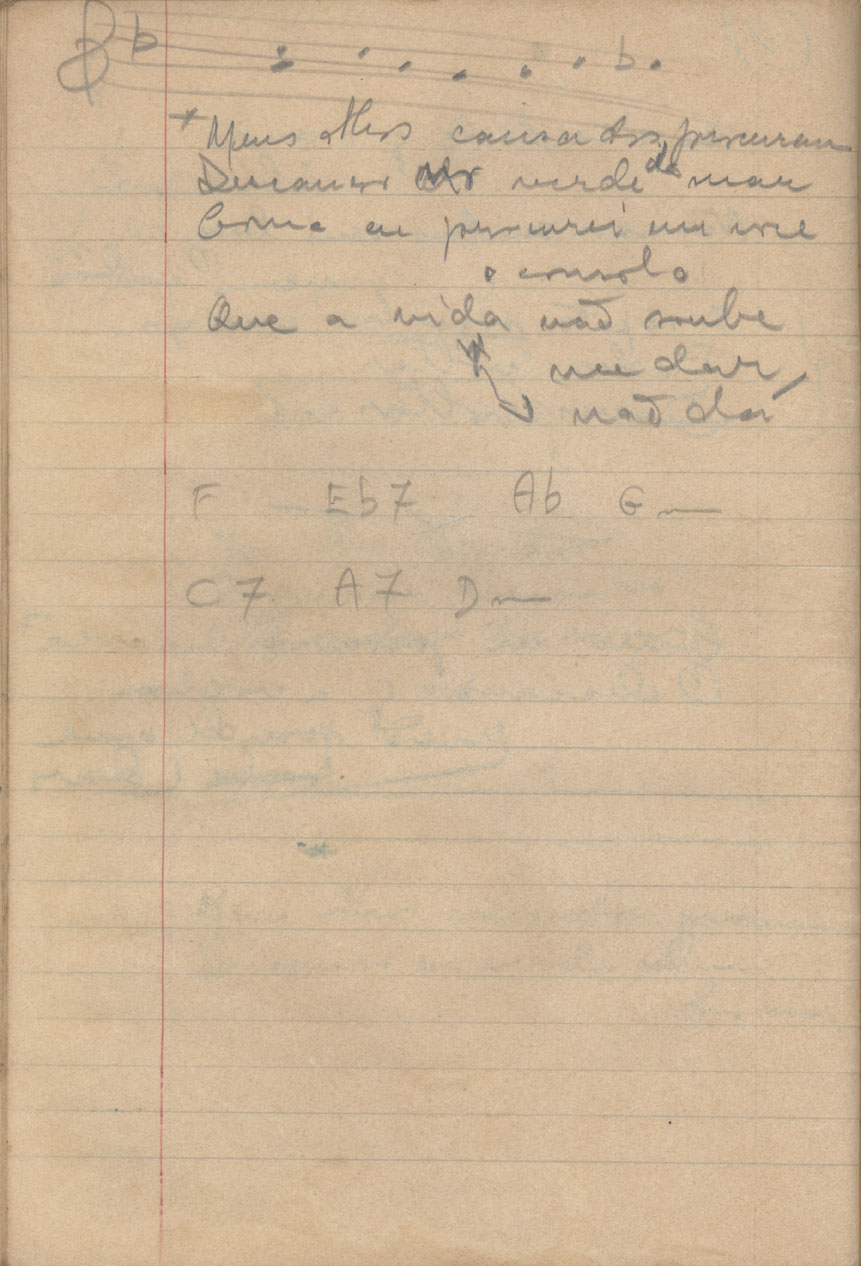 b b
* Meus olhos cansados, procuram
Descanso no verde do mar
Como eu procurei em você
o consolo
Que a vida não soube
me dar,
não dá
F Eb7 Ab G
C7 A7 D